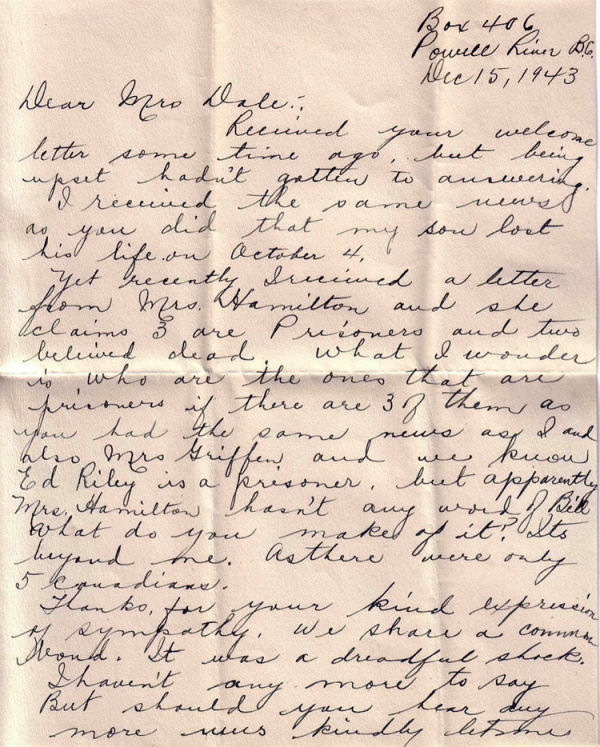 Box 406
Powell River B.C.
Dec 15, 1943
Dear Mrs Dale:,
Received your welcome
letter some time ago, but being
upset hadn't gotten to answering.
I received the same news
as you did that my son lost
his life on October 4.
Yet recently I received a letter
from Mrs. Hamilton and she
claims 3 are Prisoners and two
belived dead. What I wonder
is who are the ones that are
prisoners if there are 3 of them as
you had the same news as I and
also Mrs Griffen and we know
Ed Riley is a prisoner, but apparently
Mrs. Hamilton hasn't any word of Bill
What do you make of it? Its
beyond me. As there were only
5 Canadians.
Thanks, for your kind expression
of sympathy. We share a common
Wound. It was a dreadful shock.
I haven't any more to say
But should you hear any
more news kindly let me